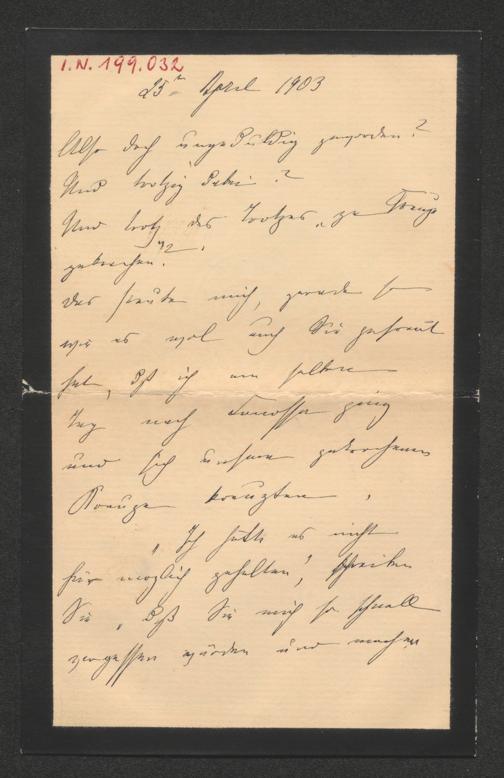 I.N. 199.032
25ten April 1903
Also doch ungeduldig geworden?
Und trotzig dabei?
Und trotz des Trotzes „zu Kreuze
gekrochen“?
das freute mich, gerade so
wie es wol auch Sie gefreut
hat, daß ich am selben
Tag nach Canossa ging
und sich unsere gekrochenen
Kreuze kreuzten.
„Ich hätte es nicht
für möglich gehalten“, schreiben
Sie „daß Sie mich so schnell
vergessen würden und machen